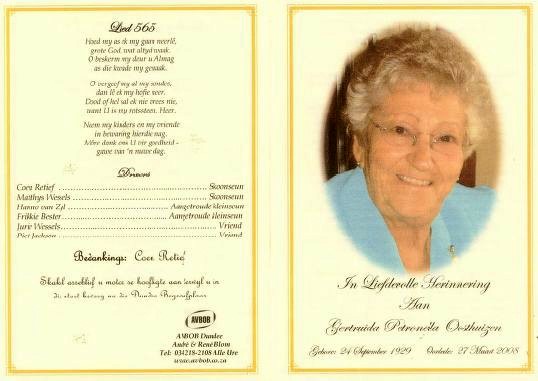 Lied 565
Hoed my as ek my gaan neerlê,
grote God, wat altyd waak.
O beskerm my deur u Almag
as die kwade my genaak.
O vergeef my al my sondes,
dan lê ek my hofie neer.
Dood of hel sal ek nie vrees nie,
want U is my rotssteen, Heer.
Neem my kinders en my vriende
in bewaring hierdie nag.
Môre dank ons U vir goedheid -
gawe van 'n nuwe dag.
Draers
Coen Retief ........................ Skoonseun
Matthys Wessels ........................ Skoonseun
Hanno van Zyl ........................ Aangetroude kleinseun
Frikkie Bester ........................ Aangetroude kleinseun
Jurie Wessels ........................ Vriend
Piet Jackson ........................ Vriend
Bedankings: Coen Retief
Skakel asseblief u motor se hoofligte aan terwyl u in
die stoet beweeg na die Dundee Begraafplaas
AVBOB
AVBOB Dundee
André & René Blom
Tel: 034218-2108 Alle Ure
www.avbob.co.za
In Liefdevolle Herinnering
Aan
Gertruida Petronella Oosthuizen
Gebore: 24 September 1929 Oorlede: 27 Maart 2008